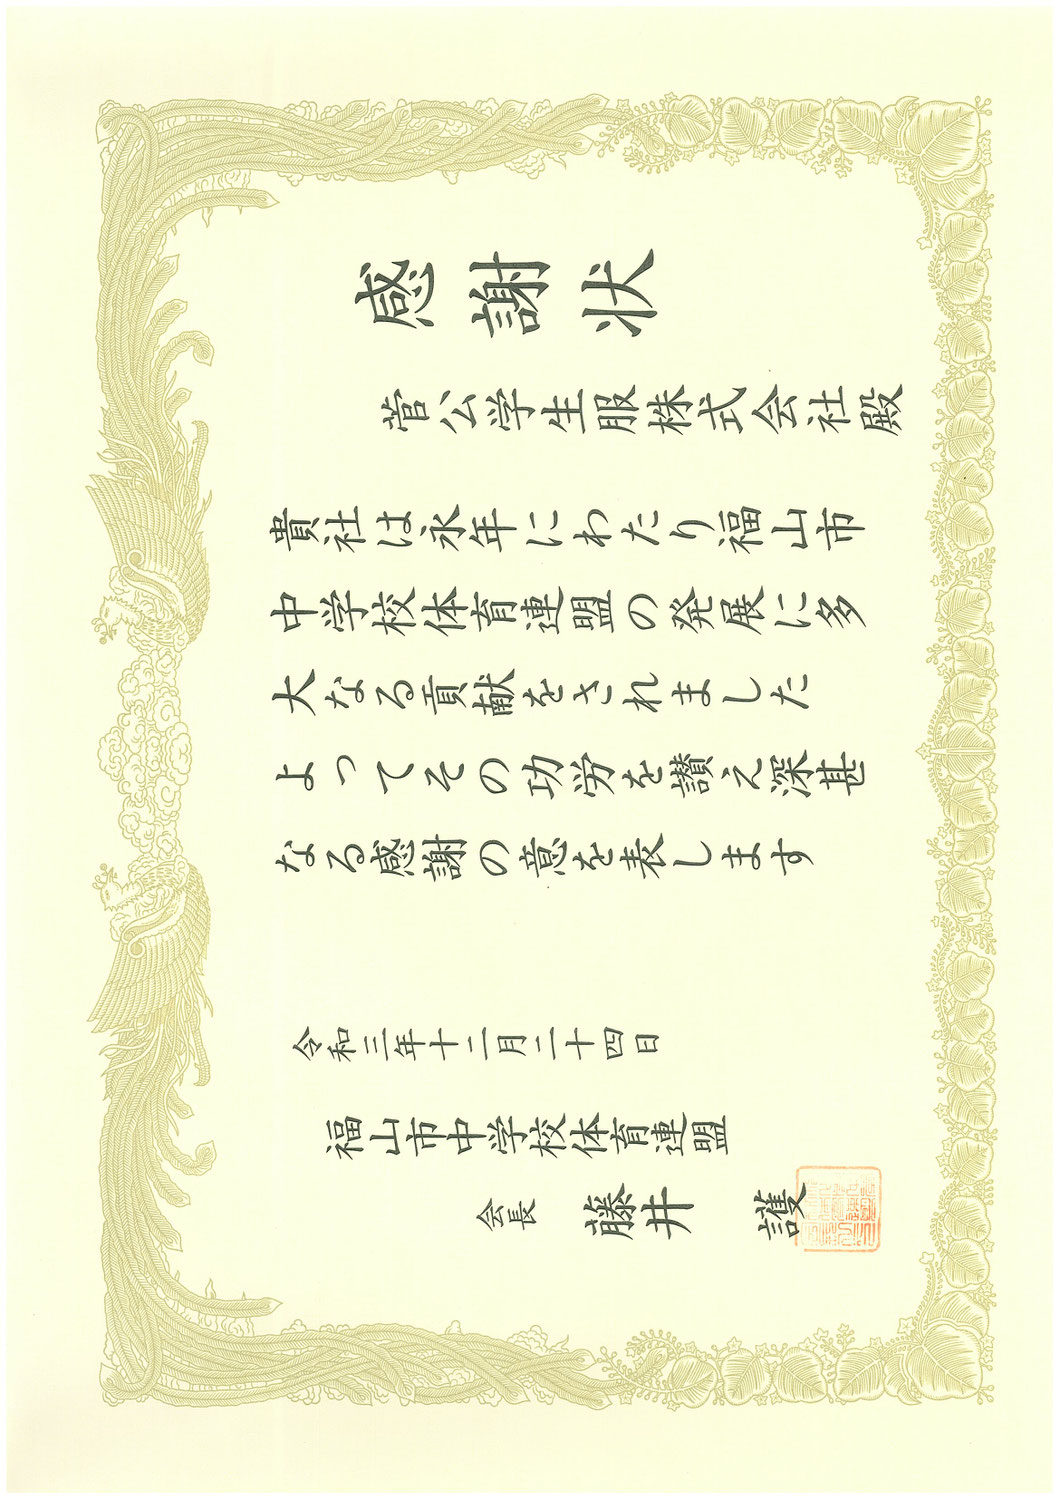 感謝状
菅公学生服株式会社殿
貴社は永年にわたり福山市
中学校体育連盟の発展に多
大なる貢献をされました
よってその功労を讃え深甚
なる感謝の意を表します
令和三年十二月二十四日
福山市中学校体育連盟
会長 藤井 護